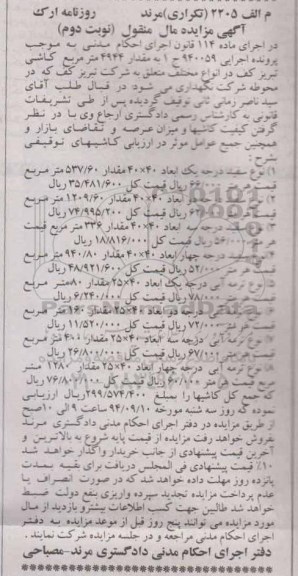 م الف ۲۲۰۵ (تکراری)مرند روزنامه ارک
آگهی مزایده مال منقول (نوبت دوم)
در اجرای ماده ۱۱۴ قانون اجرای احکام مدنی به موجب
پرونده اجرایی ۹۴۰۰۵۹ ح ۱ به مقدار ۴۹۴۴ متر مربع کاشی
تبریز کف در انواع مختلف متعلق به شرکت تبریز کف که در
محوطه شرکت نگهداری می شود: در قبال طلب آقای
سید ناصر زمانی ثانی توقیف گردیده پس از طی تشریفات
قانونی به کارشناس رسمی دادگستری ارجاع وی با در نظر
گرفتن کیفیت کاشیها و میزان عرضه و تقاضای بازار و
همچنین جمیع عوامل موثر در ارزیابی کاشیهای توقیفی
بشرح :
۱) نوع سفید درجه یک ابعاد ۴۰×۴۰ مقدار ۵۳۷/۶۰ متر مربع
قیمت هر متر ریال قیمت کل ۳۵/۴۸۱/۶۰۰ ریال
۲) سفید درجه ابعاد ۴۰×۴۰ مقدار ۱۲۰۹/۶۰ متر مربع
قیمت هر متر ریال قیمت کل ۷۴/۹۹۵/۲۰۰ ریال
سفید درجه سه ابعاد ۴۰×۴۰ مقدار ۳۳۶ متر مربع قیمت
هر متر ۵۶/۰۰۰ ریال قیمت کل ۱۸/۸۱۶/۰۰۰ ریال
سفید درجه چهار ابعاد ۴۰×۴۰ مقدار ۹۴۰/۸۰ متر مربع
قیمت هر متر ۵۲/۰۰۰ ریال قیمت کل ۴۸/۹۲۱/۶۰۰ ریال
نوع ترمه آبی درجه یک ابعاد ۲۵×۴۰ مقدار ۸۰ متر مربع
قیمت هر متر ۷۸/۰۰۰ ریال قیمت کل ۶/۲۴۰/۰۰۰ ریال
نوع ترمه آبی درجه ابعاد ۲۵×۴۰ مقدار ۱۶۰ متر مربع
قیمت هر متر ۷۲/۰۰۰ ریال قیمت کل ۱۱/۵۲۰/۰۰۰ ریال
نوع ترمه آبی درجه سه ابعاد ۲۵×۴۰ مقدار ۴۰۰ متر مربع
قیمت هر متر ۶۷/۰۰۰ ریال قیمت کل ۲۶/۸۰۰/۰۰۰ ریال
نوع ترمه آبی درجه چهار ابعاد ۲۵×۴۰ مقدار ۱۲۸۰ متر
مربع قیمت هر متر ۶۰/۰۰۰ ریال قیمت کل ۷۶/۸۰۰/۰۰۰ ریال
که جمع کل کاشیها را بمبلغ ۲۹۹/۵۷۴/۴۰۰ ریال ارزیابی
نموده که روز سه شنبه مورخه ۹۴/۰۹/۱۰ ساعت ۹ الی ۱۰ صبح
از طریق مزایده در دفتر اجرای احکام مدنی دادگستری مرند
بفروش خواهد رفت مزایده از قیمت پایه شروع به بالاترین و
آخرین قیمت پیشنهادی از جانب خریدار واگذار خواهد شد
۱۰٪ قیمت پیشنهادی فی المجلس دریافت برای بقیه بمدت
پانزده روز مهلت داده خواهد شد که در صورت انصراف یا
عدم پرداخت مزایده تجدید سپرده واریزی بنفع دولت ضبط
خواهد شد طالبین جهت کسب اطلاعات بیشتر و بازدید از مال
مورد مزایده می توانند پنج روز قبل از موعد مزایده به دفتر
اجرای احکام مدنی مراجعه و در جلسه مزایده شرکت نمایند.
دفتر اجرای احکام مدنی دادگستری مرند-مصباحی